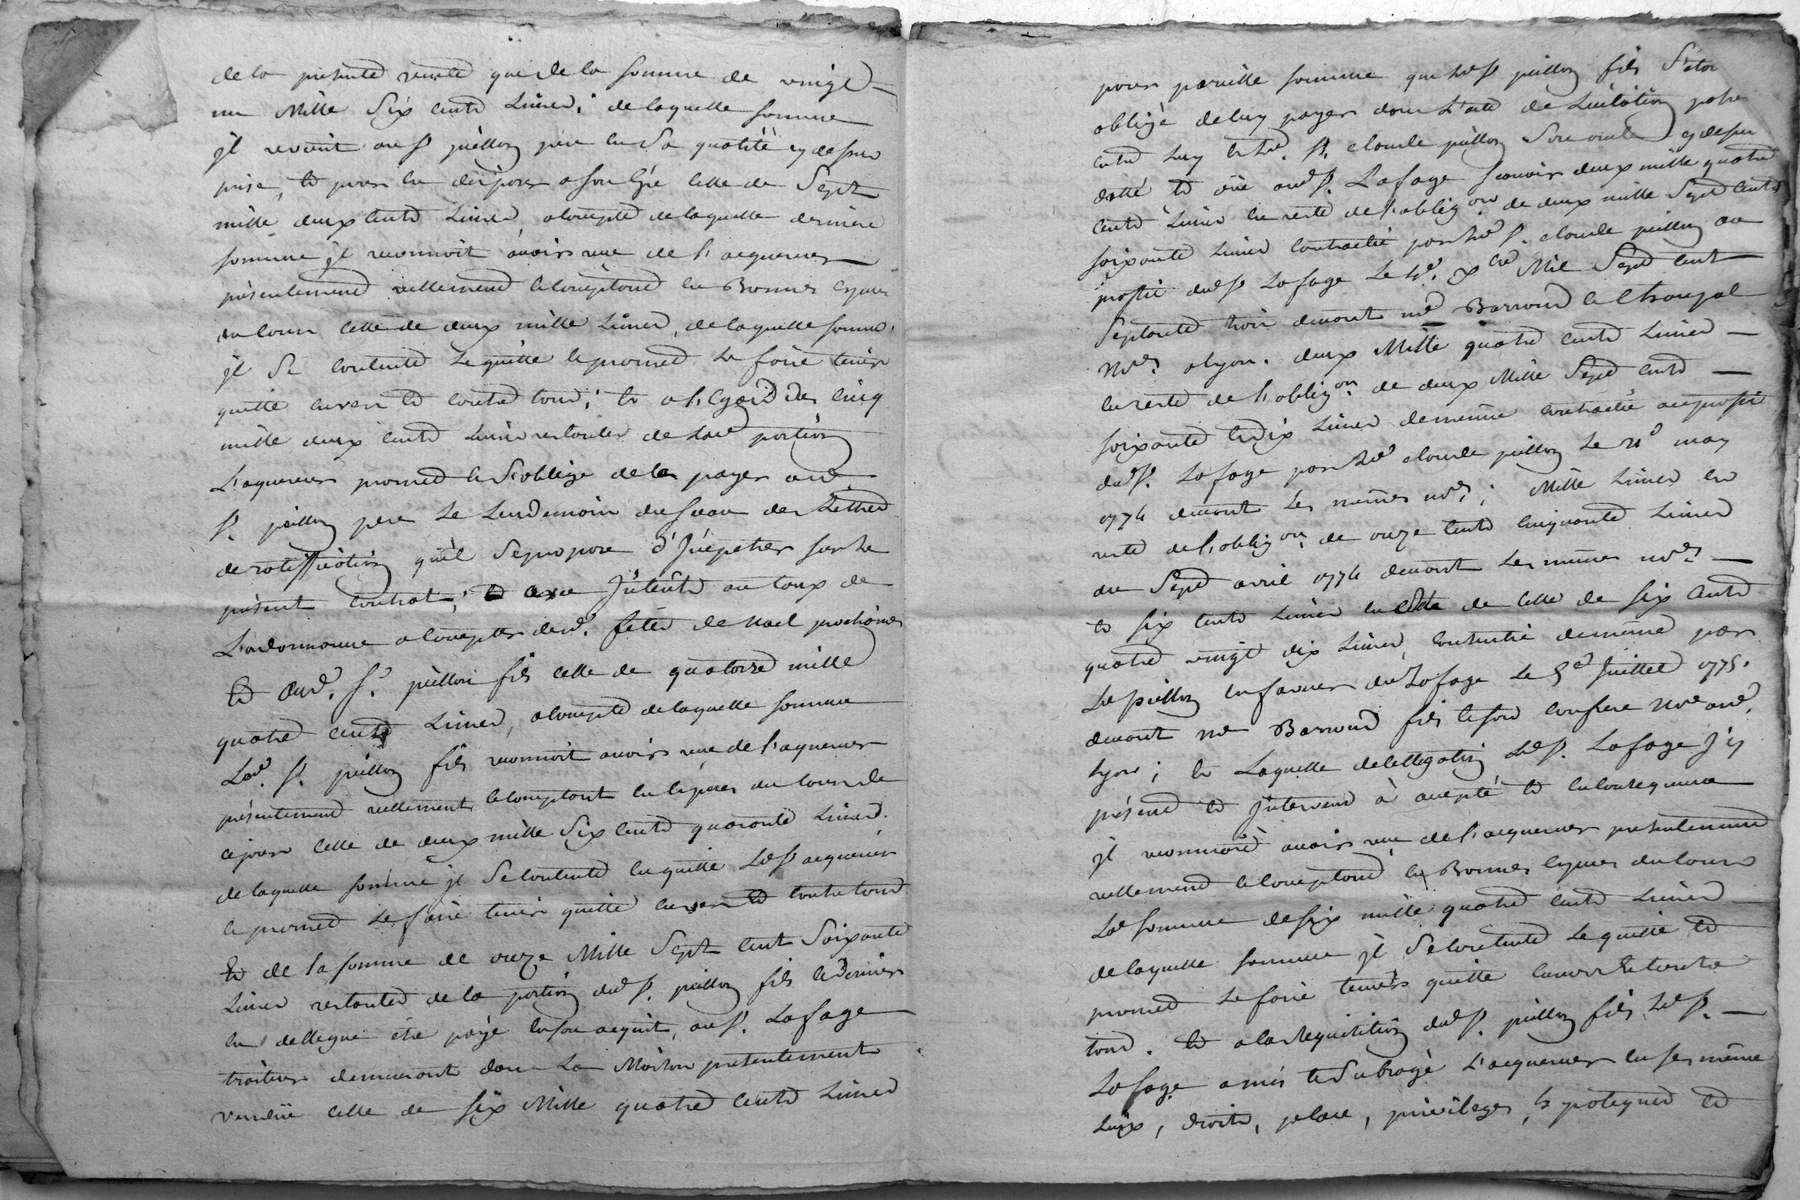 de la presente vente que de la somme de vingt
un Mille Six cents Livres; de laquelle somme
jl revient au Sr. peillon pere en Sa qualité cy dessus
prise, et pour en disposer a son gré celle de Sept
mille deux cents Livres, acompte de laquelle derniere
somme jl reconnoit avoir reçue de l'acquereur
présentement réellement et comptant en Bonnes Especes
du Cours celle de deux mille Livres, de laquelle somme
jl se contente le quitte et promet le faire tenir
quitte envers et contre tous; et a l'egard des cinq
mille deux cents Livres restantes de lad. portion
L'aquereur promet et S'oblige de les payer aud.
Sr. peillon pere le Lendemain du Sceau des Lettres
de ratiffication qu'il Se propose d'Jmpetrer sur le
présent contrat; et avec Jnterêts au taux de
L'ordonnance a compter desd. fêtes de Noel prochaines
Et aud. Sr. peillon fils celle de quatorze mille
quatre cents Livres, acompte de laquelle somme
Led. Sr. peillon fils reconnoit avoir reçue de l'aquereur
présentement reellement et comptant en Especes du cours de
ce jour celle de deux mille Six cents quarante Livres.
de laquelle somme jl Se contente en quitte Led. Sr. acquereur
et promet le faire tenir quitte envers et contre tous
Et de la somme de onze Mille Sept cent Soixante
Livres restantes de la portion dud. Sr. peillon fils ce dernier
en dellegue être payé en son acquit, au Sr. Lafage
traiteur demeurant dans La Maison présentement
vendüe celle de six Mille quatre cents Livres
pour pareille somme que led. Sr. peillon fils S'etoit
obligé de luy payer dans L'acte de Licitation passé
entre luy et led. Sr. claude peillon Son oncle cy dessus
datté et düe aud. Sr. Lafage Scavoir deux mille quatre
cents Livres en reste de l'oblig.on de deux mille Sept cents
soixante Livres contractée par led. Sr. claude peillon au
profit dud. Sr. Lafage Le 4e. Xbre Mil Sept cent
Septante trois devant me Barroud et
Nres. a Lyon. deux Mille quatre cents Livres
en reste de l'oblig.on de deux Mille Sept cents
soixante et dix Livres de même contractée au profit
dud. Sr. Lafage par led. claude peillon Le may
1774 devant Les mêmes nres; Mille Livres en
reste de l'oblig.on de onze cents cinquante Livres
du Sept avril 1774 devant Les mêmes nres
et six cents Livres en reste de celle de six cents
quatre vingt dix Livres, de même par
Led. peillon en faveur dud. Lafage Le 5e Juillet 1775.
devant me Barroud fils et son confrere Nres aud.
Lyon; et Laquelle dellegation led. Sr. Lafage J'cy
présent et Jntervenu à accepté et en consequence
jl reconnoit avoir reçue de l'acquereur présentement
réellement et comptant en Bonnes Especes du Cours
Lad. somme de six mille quatre cents Livres
de laquelle somme jl Se contente Le quitte et
promet Le faire tenir quitte envers et contre
tous. et a la requisition dud. Sr. peillon fils led. Sr.
Lafage a mis et Subrogé L'acquereur en ses même
Lieux, droits, place, privileges, hypoteques et